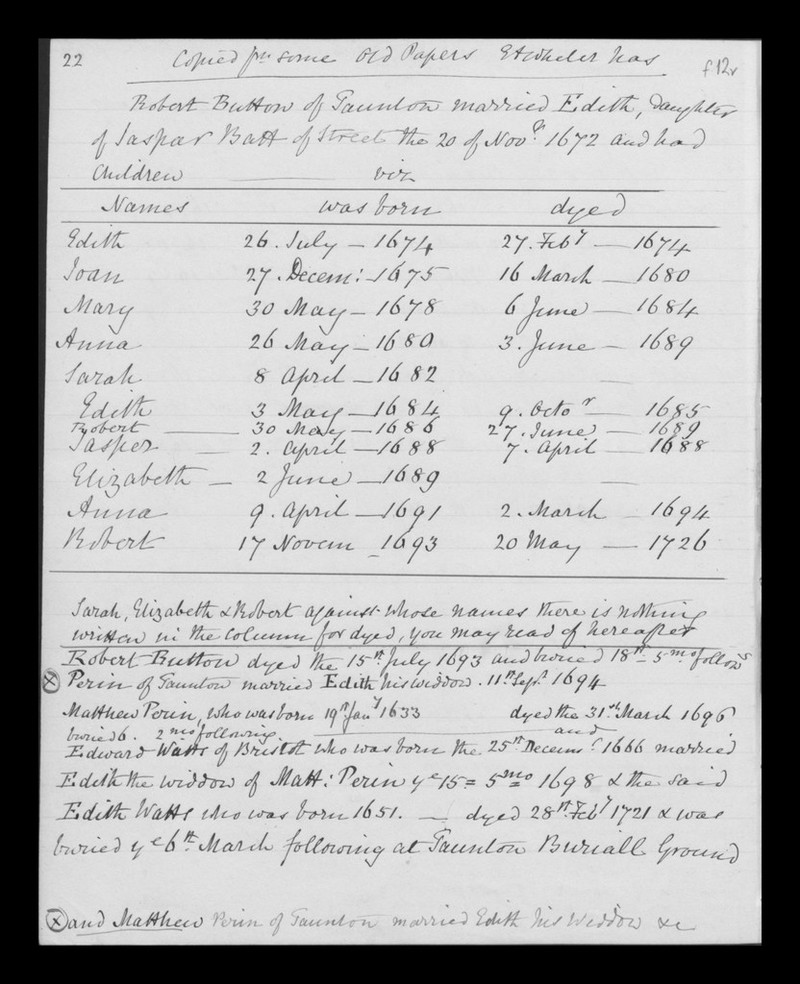 22 Copied fm some Old Papers EA Wheeler has f12v
Robert Button of Taunton married Edith, Daughter
of Jaspar Batt of Street the 20 of Novr 1672 and had
Children viz
Names was born dyed
Edith 26. July – 1674 27. Feby – 1674
Joan 27. Decem: – 1675 16 March – 1680
Mary 30 May – 1678 6 June – 1684
Anna 26 May – 1680 3. June – 1689
Sarah 8 April – 1682 –
Edith 3 May – 1684 9. Octor – 1685
Robert – 30 May – 1686 27. June – 1689
Jasper – 2. April – 1688 7. April – 1688
Elizabeth – 2 June – 1689 –
Anna 9. April – 1691 2. March – 1694
Robert 17 Novem – 1693 20 May – 1726
Sarah, Elizabeth & Robert against whose names there is nothing
written in the column for dyed, you may read of hereafter
Robert Button dyed the 15th July 1693 and buried 18th 5mo follows
(x) Perin of Taunton married Edith his widdow. 11th Sept. 1694
Matthew Perin, who was born 19th Jany 1633 dyed the 31st March 1696
buried 6. 2mo following — and
Edward Watts of Bristol who was born the 25th Decemr 1666 married
Edith the widdow of Matt: Perin ye 15= 5mo 1698 & the said
Edith Watts who was born 1651. — dyed 28th Feby 1721 & was
buried ye 6th March following at Taunton Buriall Ground
(x) and Matthew Perin of Taunton married Edith his Widdow &c